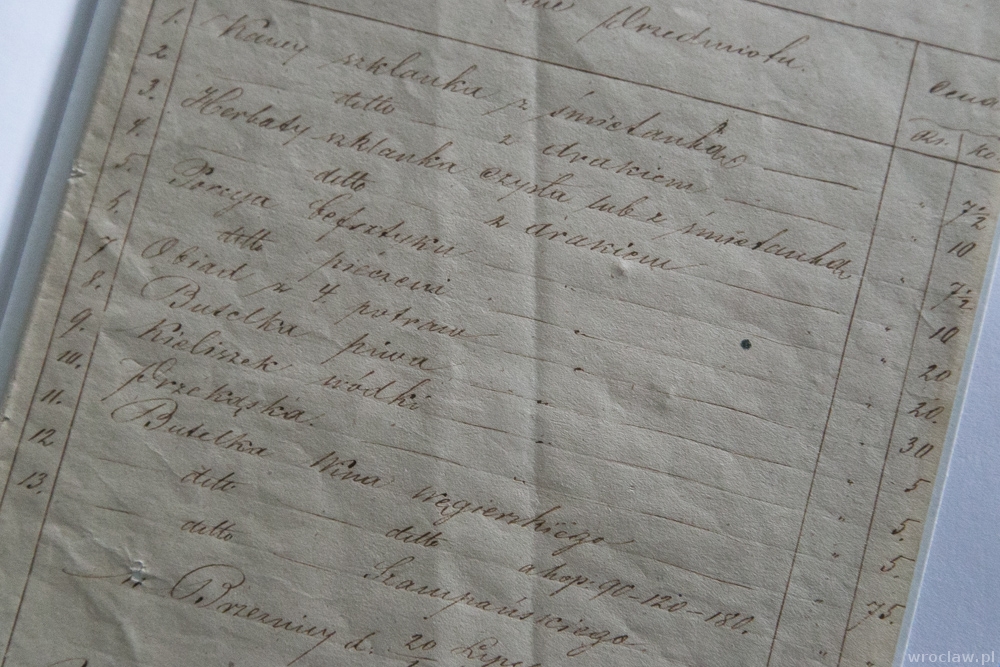 Przedmiotu. Cena
rs. ko
1. Kawy szklanka z śmietanką " 7½
2 ditto z arakiem " 10
3. Herbaty szklanka czysta lub z śmietanką " 7½
4. ditto z arakiem " 10
5. Porcya befsztyku " " 20
6. ditto pieczeni " 20.
7 Obiad z 4 potraw " 30
8. Butelka piwa " " 5
9. Kieliszek wódki " " 5.
10. Przekąska. " " 5.
11. Butelka Wina węgierskiego " 75.
12 ditto ditto a kop. 90-120-180.
13. ditto Szampańskiego
w Brzeznicy d. 20 Lipca
wroclaw.pl